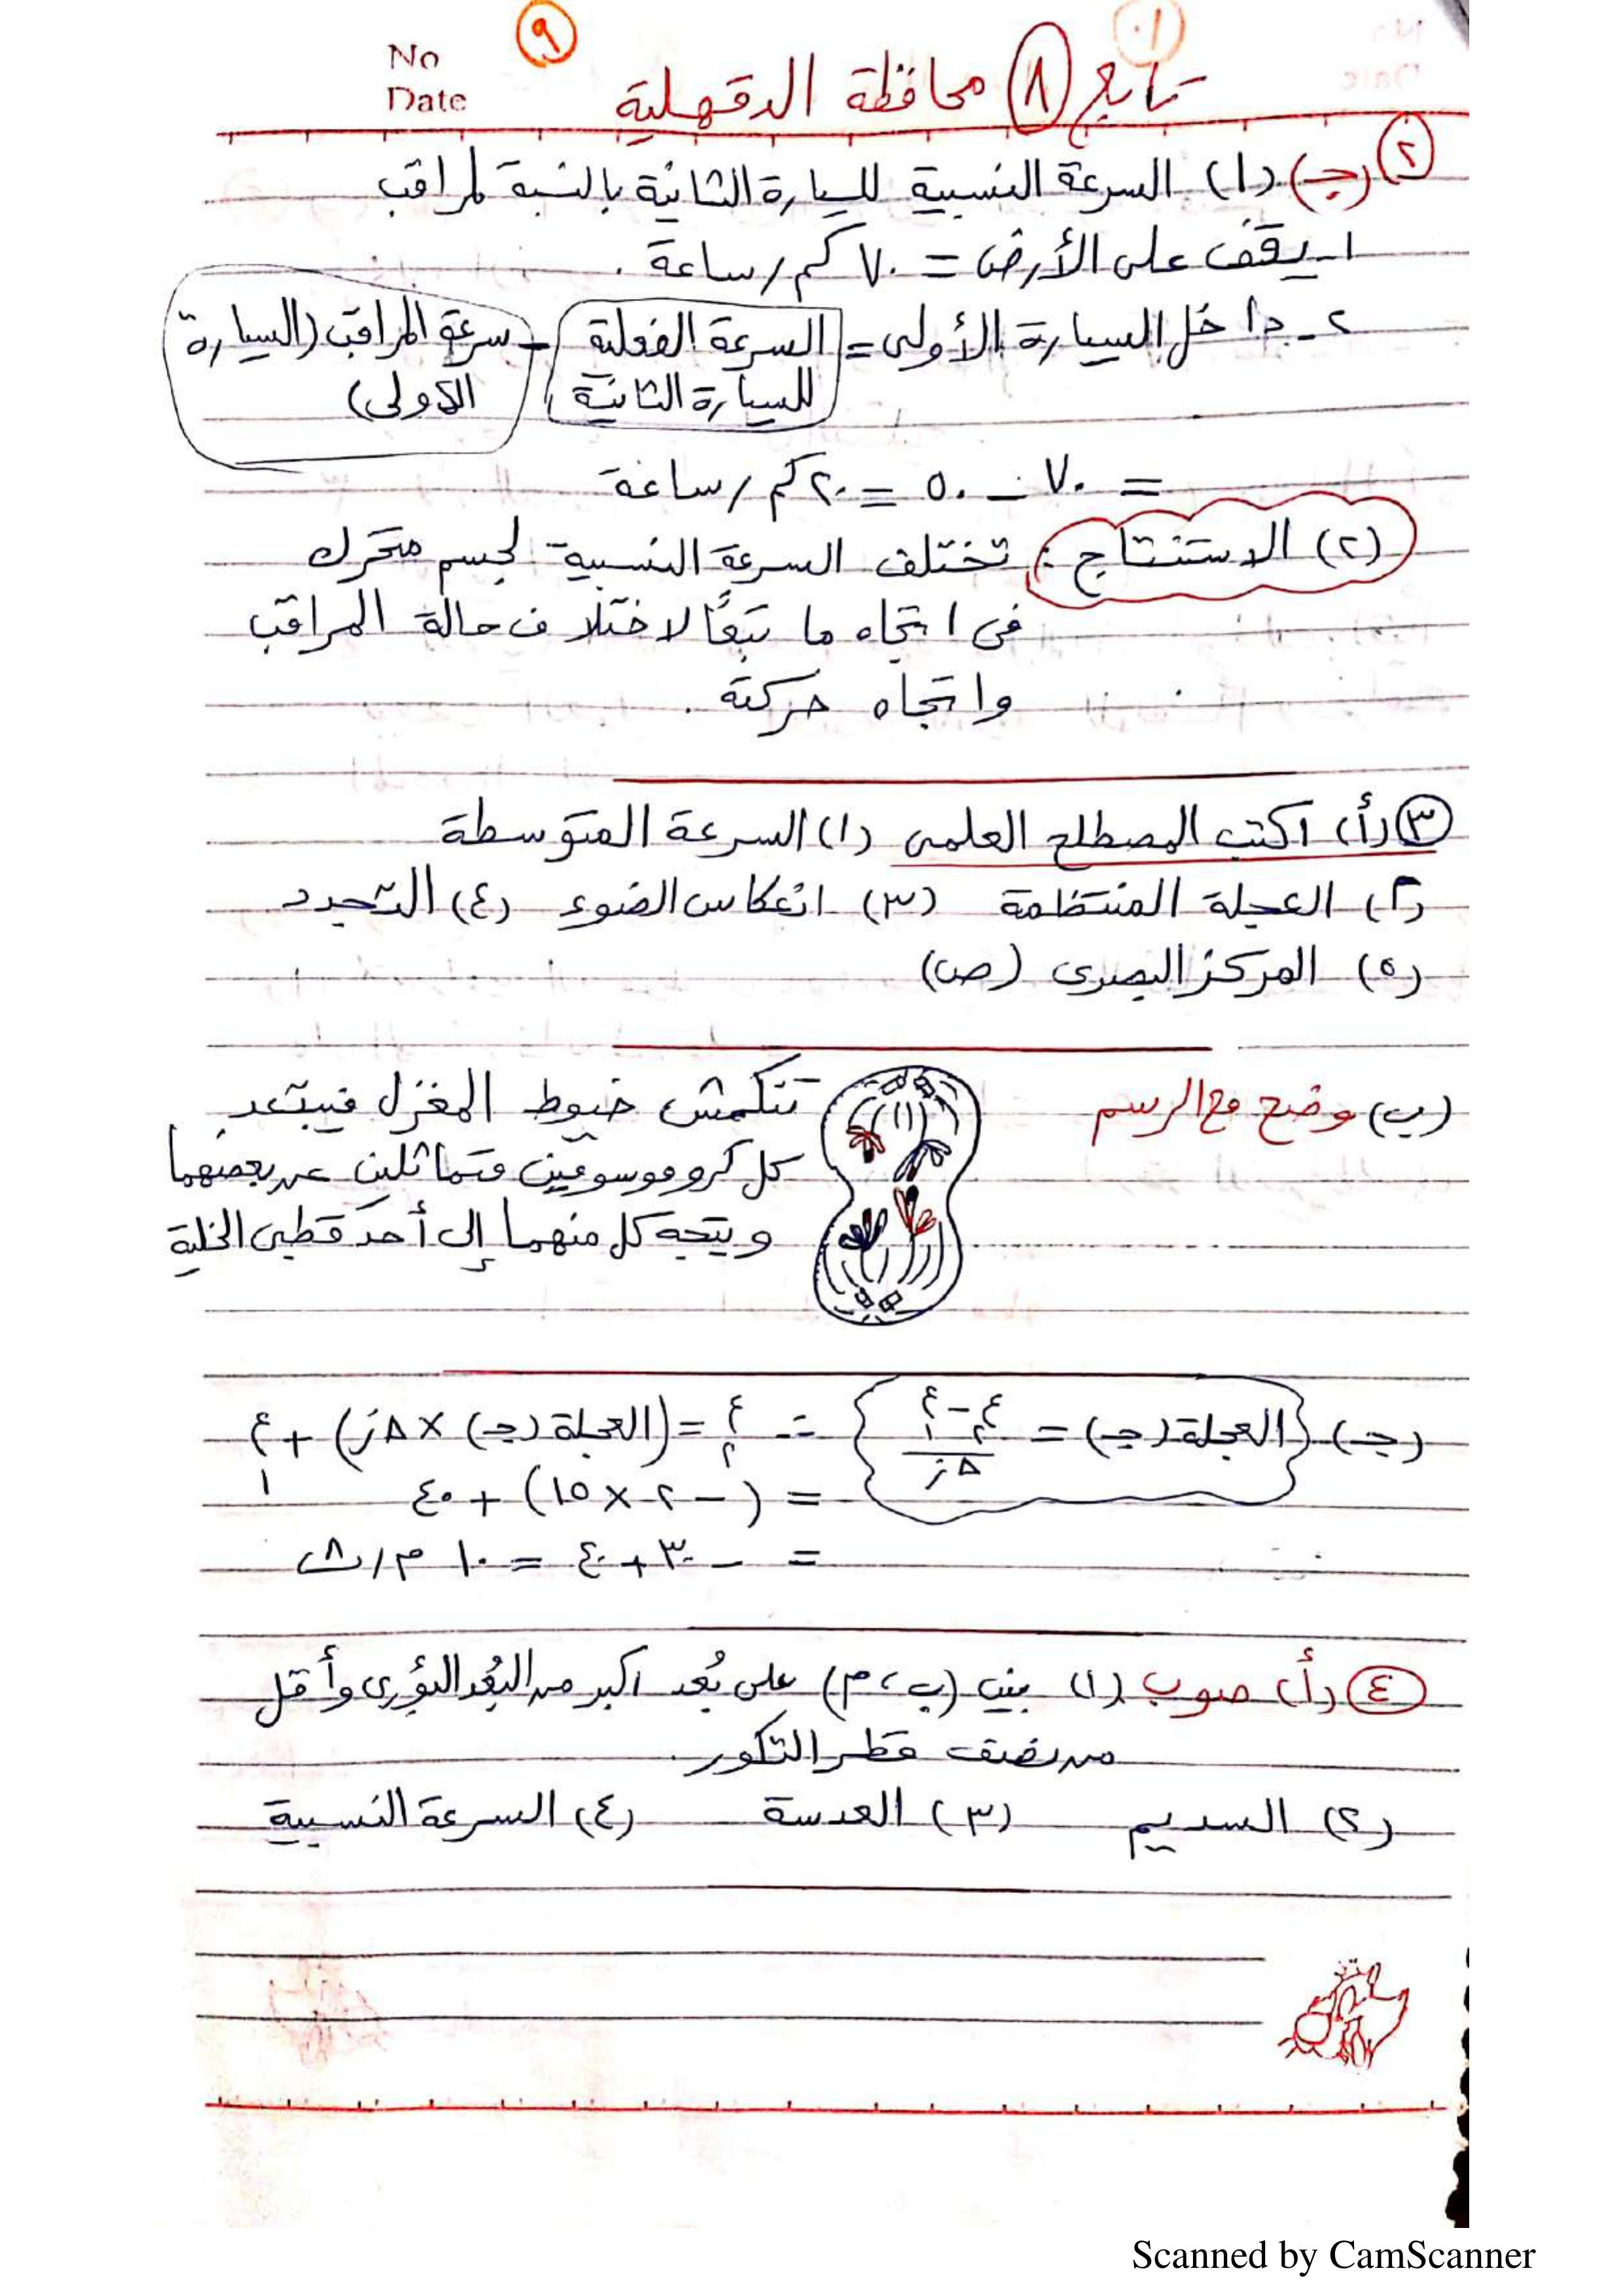 No
Date
٩
تابع ٨ محافظة الدقهلية
٢ (جـ) (١) السرعة النسبية للسيارة الثانية بالنسبة لمراقب
١- يقف على الأرض = ٧٠ كم/ساعة .
٢- داخل السيارة الأولى = السرعة الفعلية للسيارة الثانية - سرعة المراقب (السيارة الأولى)
= ٧٠ - ٥٠ = ٢٠ كم/ساعة
(٢) الاستنتاج : تختلف السرعة النسبية لجسم متحرك
فى اتجاه ما تبعًا لاختلاف حالة المراقب
واتجاه حركته .
٣ (أ) اكتب المصطلح العلمى (١) السرعة المتوسطة
(٢) العجلة المنتظمة (٣) انعكاس الضوء (٤) التجدد
(٥) المركز البصرى (ص)
(ب) وضح مع الرسم
تنكمش خيوط المغزل فيبتعد
كل كروموسومين متماثلين عن بعضهما
ويتجه كل منهما إلى أحد قطبى الخلية
(جـ) العجلة (جـ) = ع٢ - ع١ / Δز ∴ ع٢ = (العجلة (جـ) × Δز) + ع١
= (-٢ × ١٥) + ٤٠
= -٣٠ + ٤٠ = ١٠ م/ث
٤ (أ) صوب (١) بين (ب، م) على بُعد اكبر من البُعد البؤرى وأقل
من نصف قطر التكور .
(٢) السديم (٣) العدسة (٤) السرعة النسبية
Scanned by CamScanner